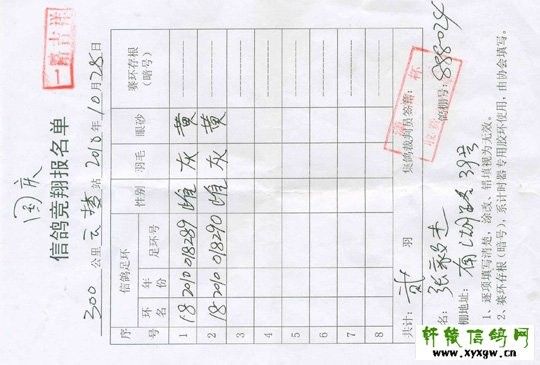 国庆
信鸽竞翔报名单
300 公里 云梦 站 2010 年 10 月 28 日
一路吉祥
序号 信鸽足环 性别 羽毛 眼砂 赛环存根(暗号)
环名 年份 足环号
1 18 2010 018289 雌 灰 黄
2 18 2010 018290 雌 灰 黄
3
4
5
6
7
8
共计: 贰 羽 集鸽裁判员签籍:
名: 张
鸽棚号: 888024
棚地址: 39号
1、逐项填写清楚,涂改、错填视为无效。
2、赛环存根(暗号),系计时器专用胶环使用,由协会填写。
轩陵信鸽网
www.xyxgw.cn